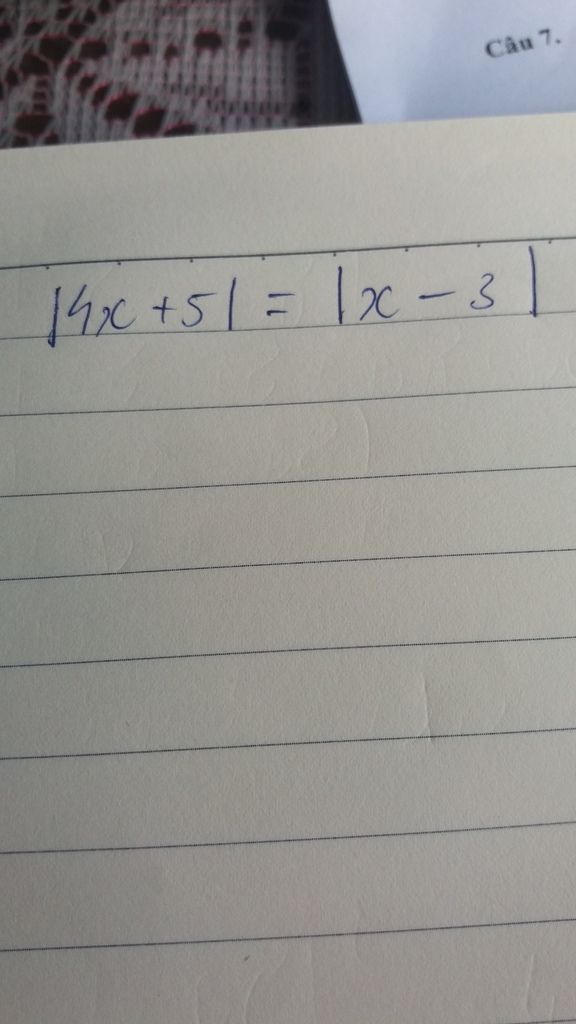 Câu 7.
|4x + 5| = |x - 3|